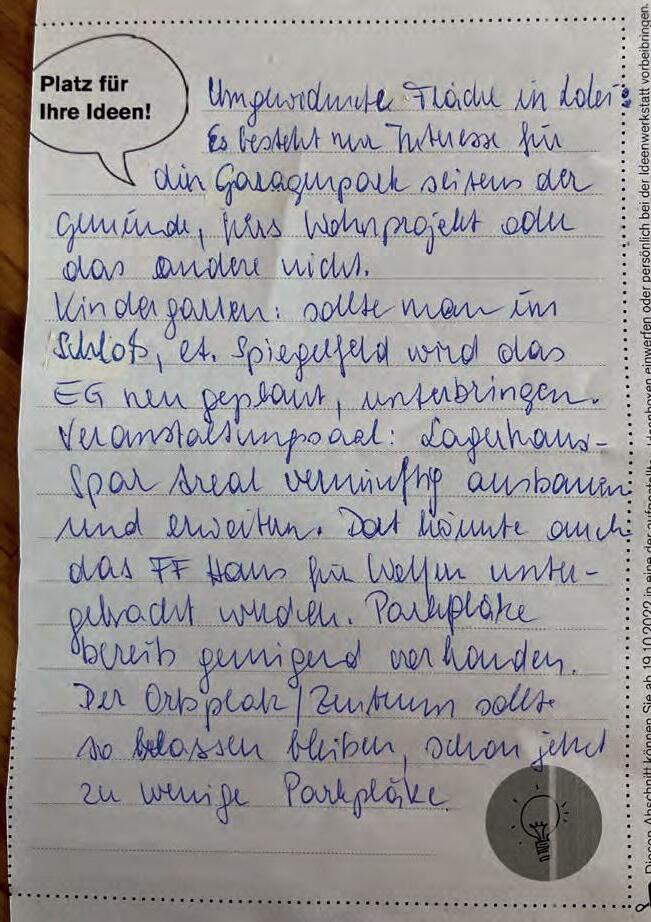 Platz für
Ihre Ideen!
Umgewidmete Fläche in
Es besteht nur Interesse für
den Garagenpark seitens der
Gemeinde, fürs Wohnprojekt oder
das andere nicht.
Kindergarten: sollte man im
Schloß, et. Spiegelfeld wird das
EG neu geplant, unterbringen.
Veranstaltungssaal: Lagerhaus-
Spar Areal vernünftig ausbauen
und erweitern. Dort könnte auch
das FF Haus für unter-
gebracht werden. Parkplätze
bereits genügend vorhanden.
Der Ortsplatz/Zentrum sollte
so belassen bleiben, schon jetzt
zu wenige Parkplätze.
Diesen Abschnitt können Sie ab 19.10.2022 in eine der aufgestellten Ideenboxen einwerfen oder persönlich bei der Ideenwerkstatt vorbeibringen.